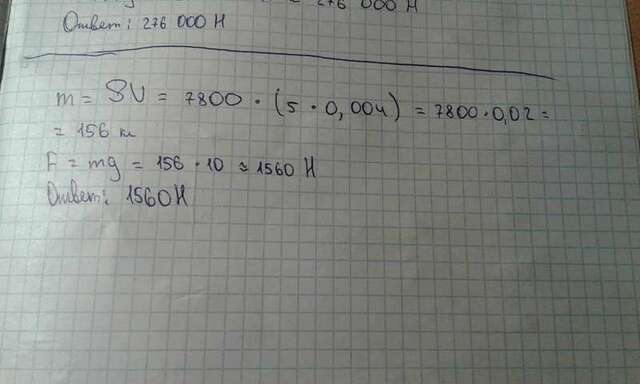 276 000 Н
Ответ: 276 000 Н
m = ρV = 7800 • (5 • 0,004) = 7800 • 0,02 =
= 156 кг
F = mg = 156 • 10 ≈ 1560 Н
Ответ: 1560 Н